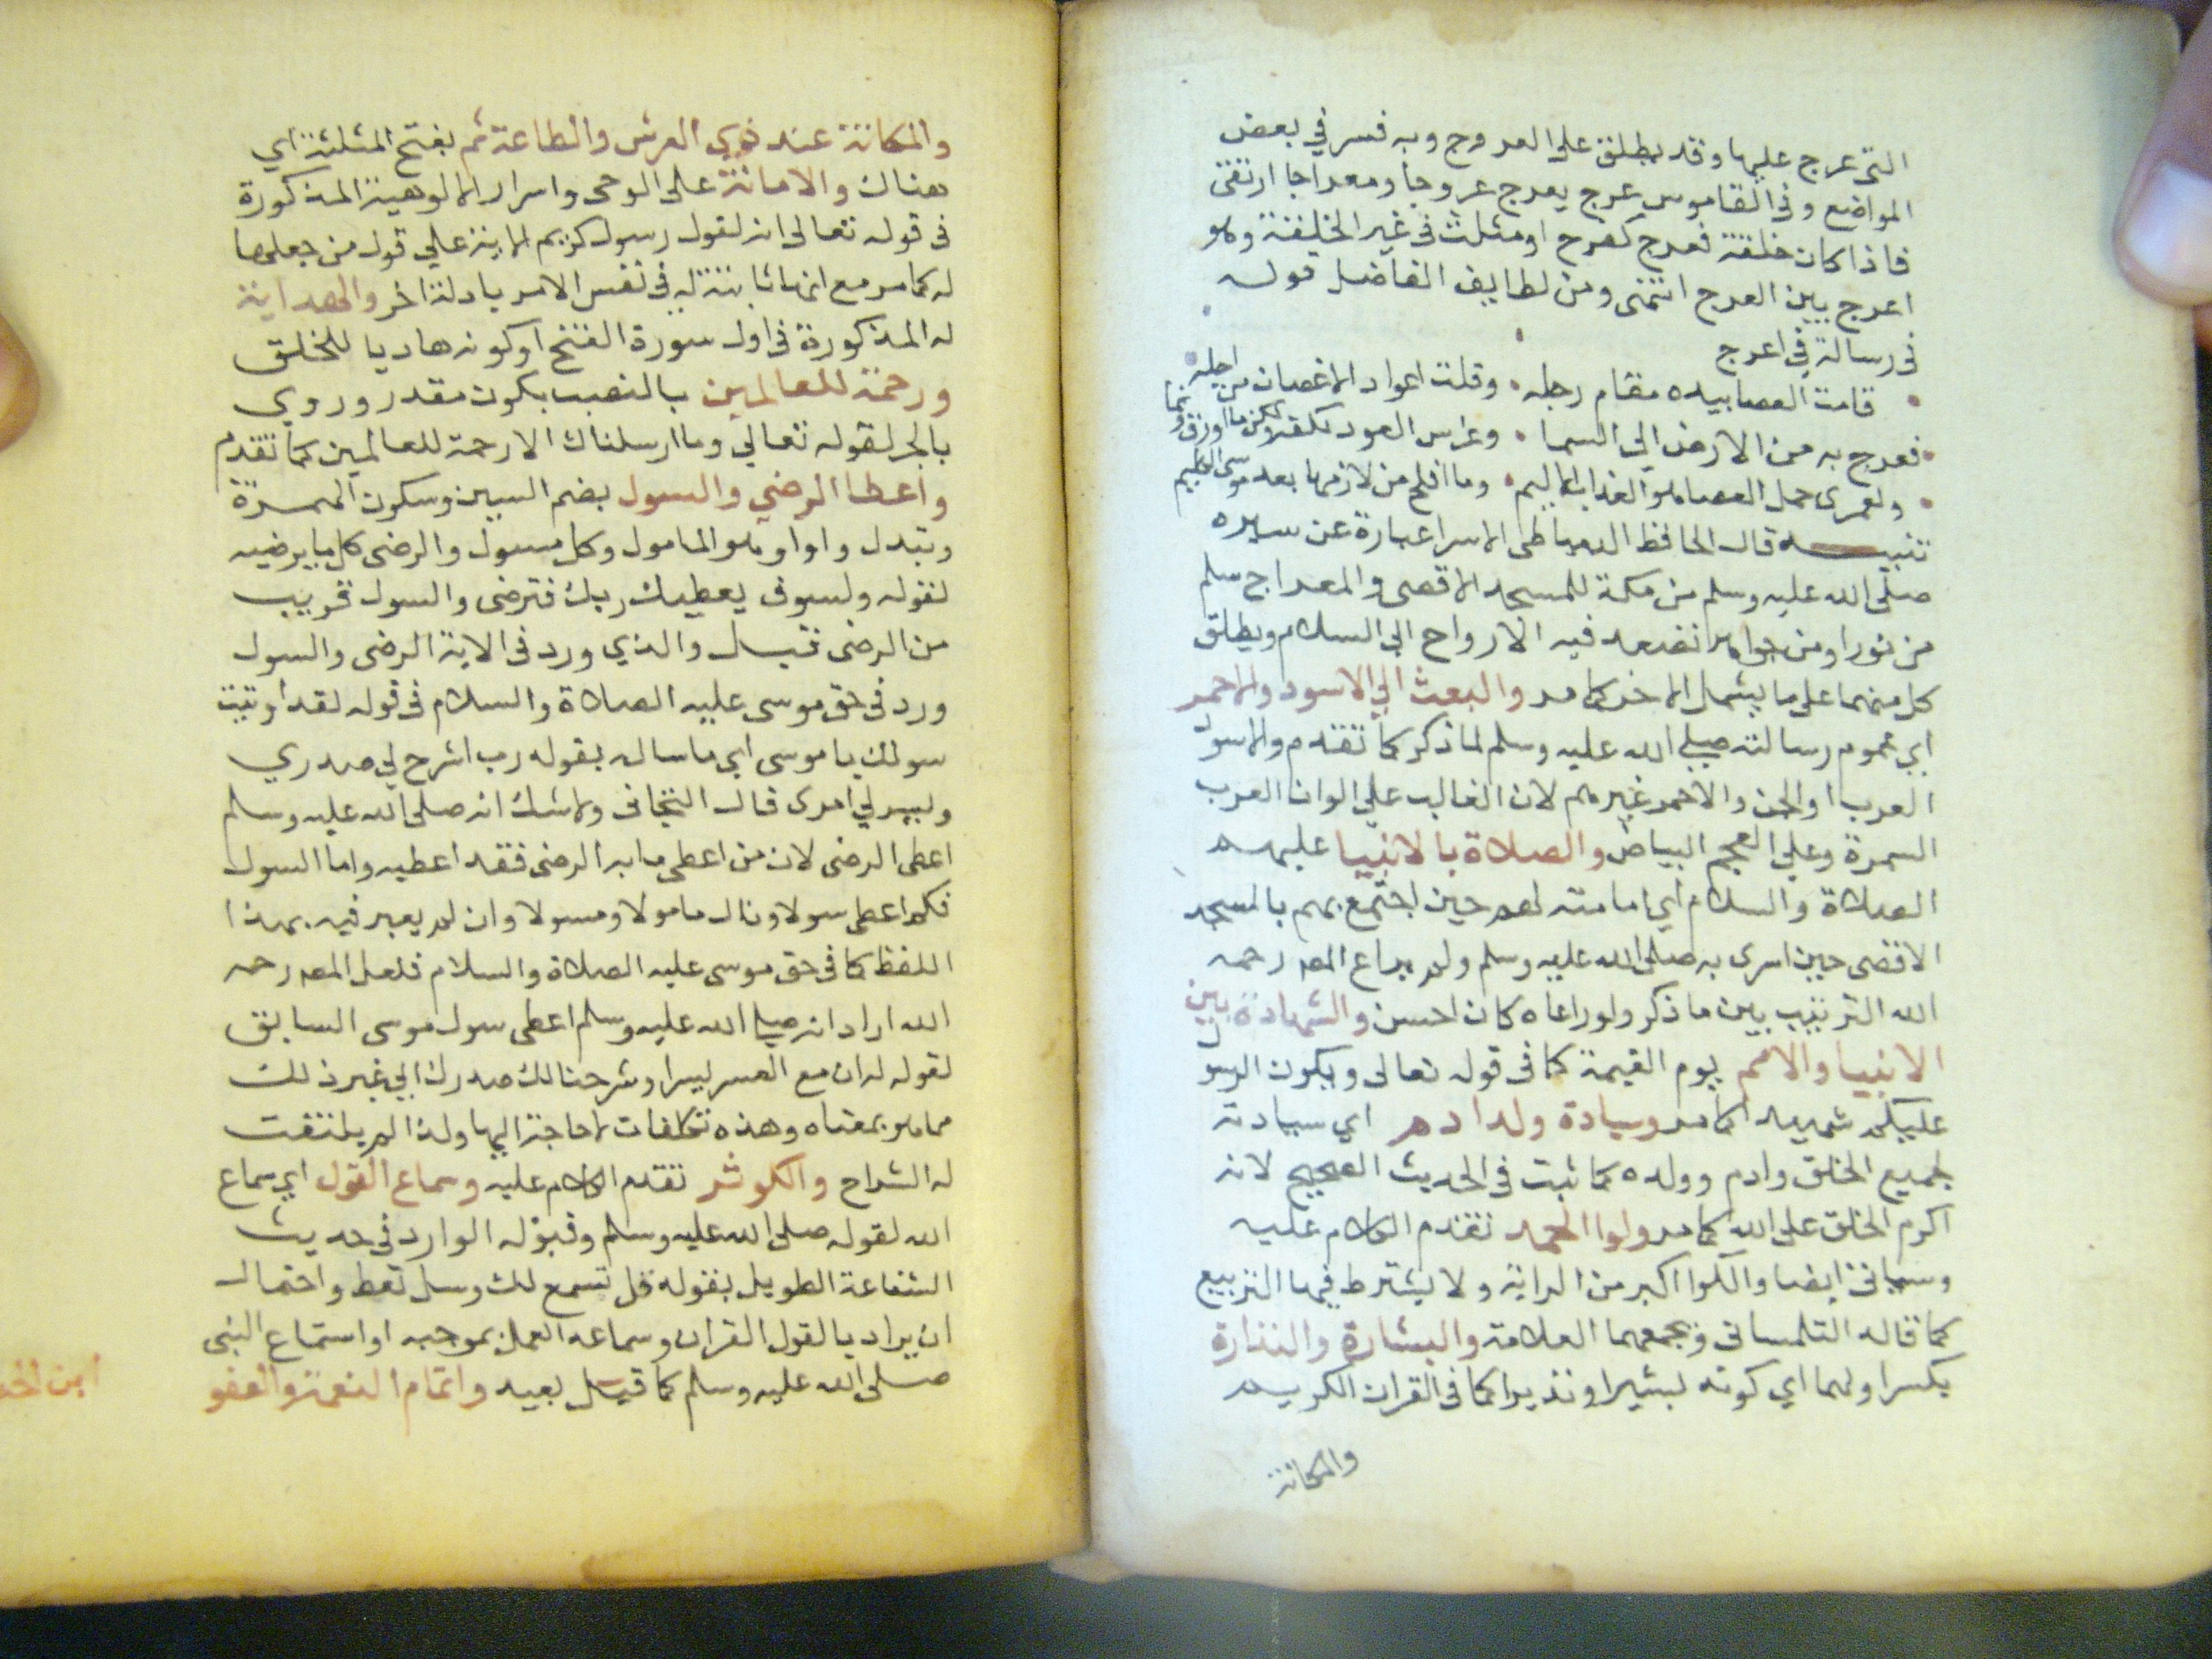 التى عرج عليها وقد يطلق على العروج وبه فسر في بعض
المواضع وفى القاموس عرج يعرج عروجا ومعراجا ارتقى
فاذا كان خلقة فعرج كفرح او مثلث فى غير الخلقة وهو
اعرج بين العرج انتهى ومن لطايف الفاضل قوله
فى رسالة في اعرج
قامت العصا بيده مقام رجله وقلت اعواد الاغصان من اجله
فعرج به من الارض الي السما وغرس العود لكن ما اورق ونما
ولعمرى حمل العصا هو العذاب الاليم وما افلح من لازمها بعد موسى الكليم
تنبيه قال الحافظ الدمياطى الاسرا عبارة عن سيره
صلى الله عليه وسلم من مكة للمسجد الاقصى والمعراج سلم
من نور او من جواهر تصعد فيه الارواح الي السلام ويطلق
كل منهما على ما يشمل الاخر كما مر والبعث الي الاسود والاحمر
اي عموم رسالته صلي الله عليه وسلم لما ذكر كما تقدم والاسود
العرب او الجن والاحمر غيرهم لان الغالب علي الوان العرب
السمرة وعلي العجم البياض والصلاة بالانبيا عليهم
الصلاة والسلام اي امامته لهم حين اجتمع بهم بالمسجد
الاقصى حين اسرى به صلى الله عليه وسلم ولم يراع المصـ رحمه
الله الترتيب بين ما ذكر ولو راعاه كان احسن والشهادة بين
الانبيا والامم يوم القيمة كما فى قوله تعالى ويكون الرسول
عليكم شهيدا كما مر وسيادة ولد ادم اي سيادته
لجميع الخلق وادم وولده كما ثبت فى الحديث الصحيح لانه
اكرم الخلق على الله كما مر ولوا الحمد تقدم الكلام عليه
وسياتى ايضا واللوا اكبر من الراية ولا يشترط فيها التربيع
كما قاله التلمسانى وبجمعهما العلامة والبشارة والنذارة
بكسر اولهما اي كونه بشيرا ونذيرا كما فى القران الكريم
والمكانة
والمكانة عند ذي العرش والطاعة ثم بفتح المثلثة اي
هناك والامانة على الوحى واسرار الالوهية المذكورة
فى قوله تعالى انه لقول رسول كريم الاية علي قول من جعلها
له كما مر مع انها ثابتة له فى نفس الامر بادلة اخر والهداية
له المذكورة فى اول سورة الفتح او كونه هاديا للخلق
ورحمة للعالمين بالنصب بكون مقدر وروي
بالجر لقوله تعالي وما ارسلناك الا رحمة للعالمين كما تقدم
واعطا الرضي والسول بضم السين وسكون الهمزة
وتبدل واوا وهو المامول وكل مسول والرضى كل ما يرضيه
لقوله ولسوف يعطيك ربك فترضى والسول قريب
من الرضى قيل والذي ورد فى الاية الرضى والسول
ورد فى حق موسى عليه الصلاة والسلام فى قوله لقد اوتيت
سولك يا موسى اي ما ساله بقوله رب اشرح لي صدري
ويسر لي امرى قال التجانى ولا شك انه صلى الله عليه وسلم
اعطى الرضى لان من اعطى ما به الرضى فقد اعطيه واما السول
فكم اعطى سولا ونال مامولا ومسولا وان لم يعبر فيه بهذا
اللفظ كما فى حق موسى عليه الصلاة والسلام فلعل المصـ رحمه
الله اراد انه صلي الله عليه وسلم اعطى سول موسى السابق
لقوله له ان مع العسر يسرا وشرحنا لك صدرك الي غير ذلك
مما هو بمعناه وهذه تكلفات لا حاجة اليها ولذا لم يلتفت
له الشراح والكوثر تقدم الكلام عليه وسماع القول اي سماع
الله لقوله صلى الله عليه وسلم وقبوله الوارد فى حديث
الشفاعة الطويل بقوله قل تسمع لك وسل تعط واحتمال
ان يراد بالقول القران وسماعه العمل بموجبه او استماع النبى
صلى الله عليه وسلم كما قيل بعيد واتمام النعمة والعفو